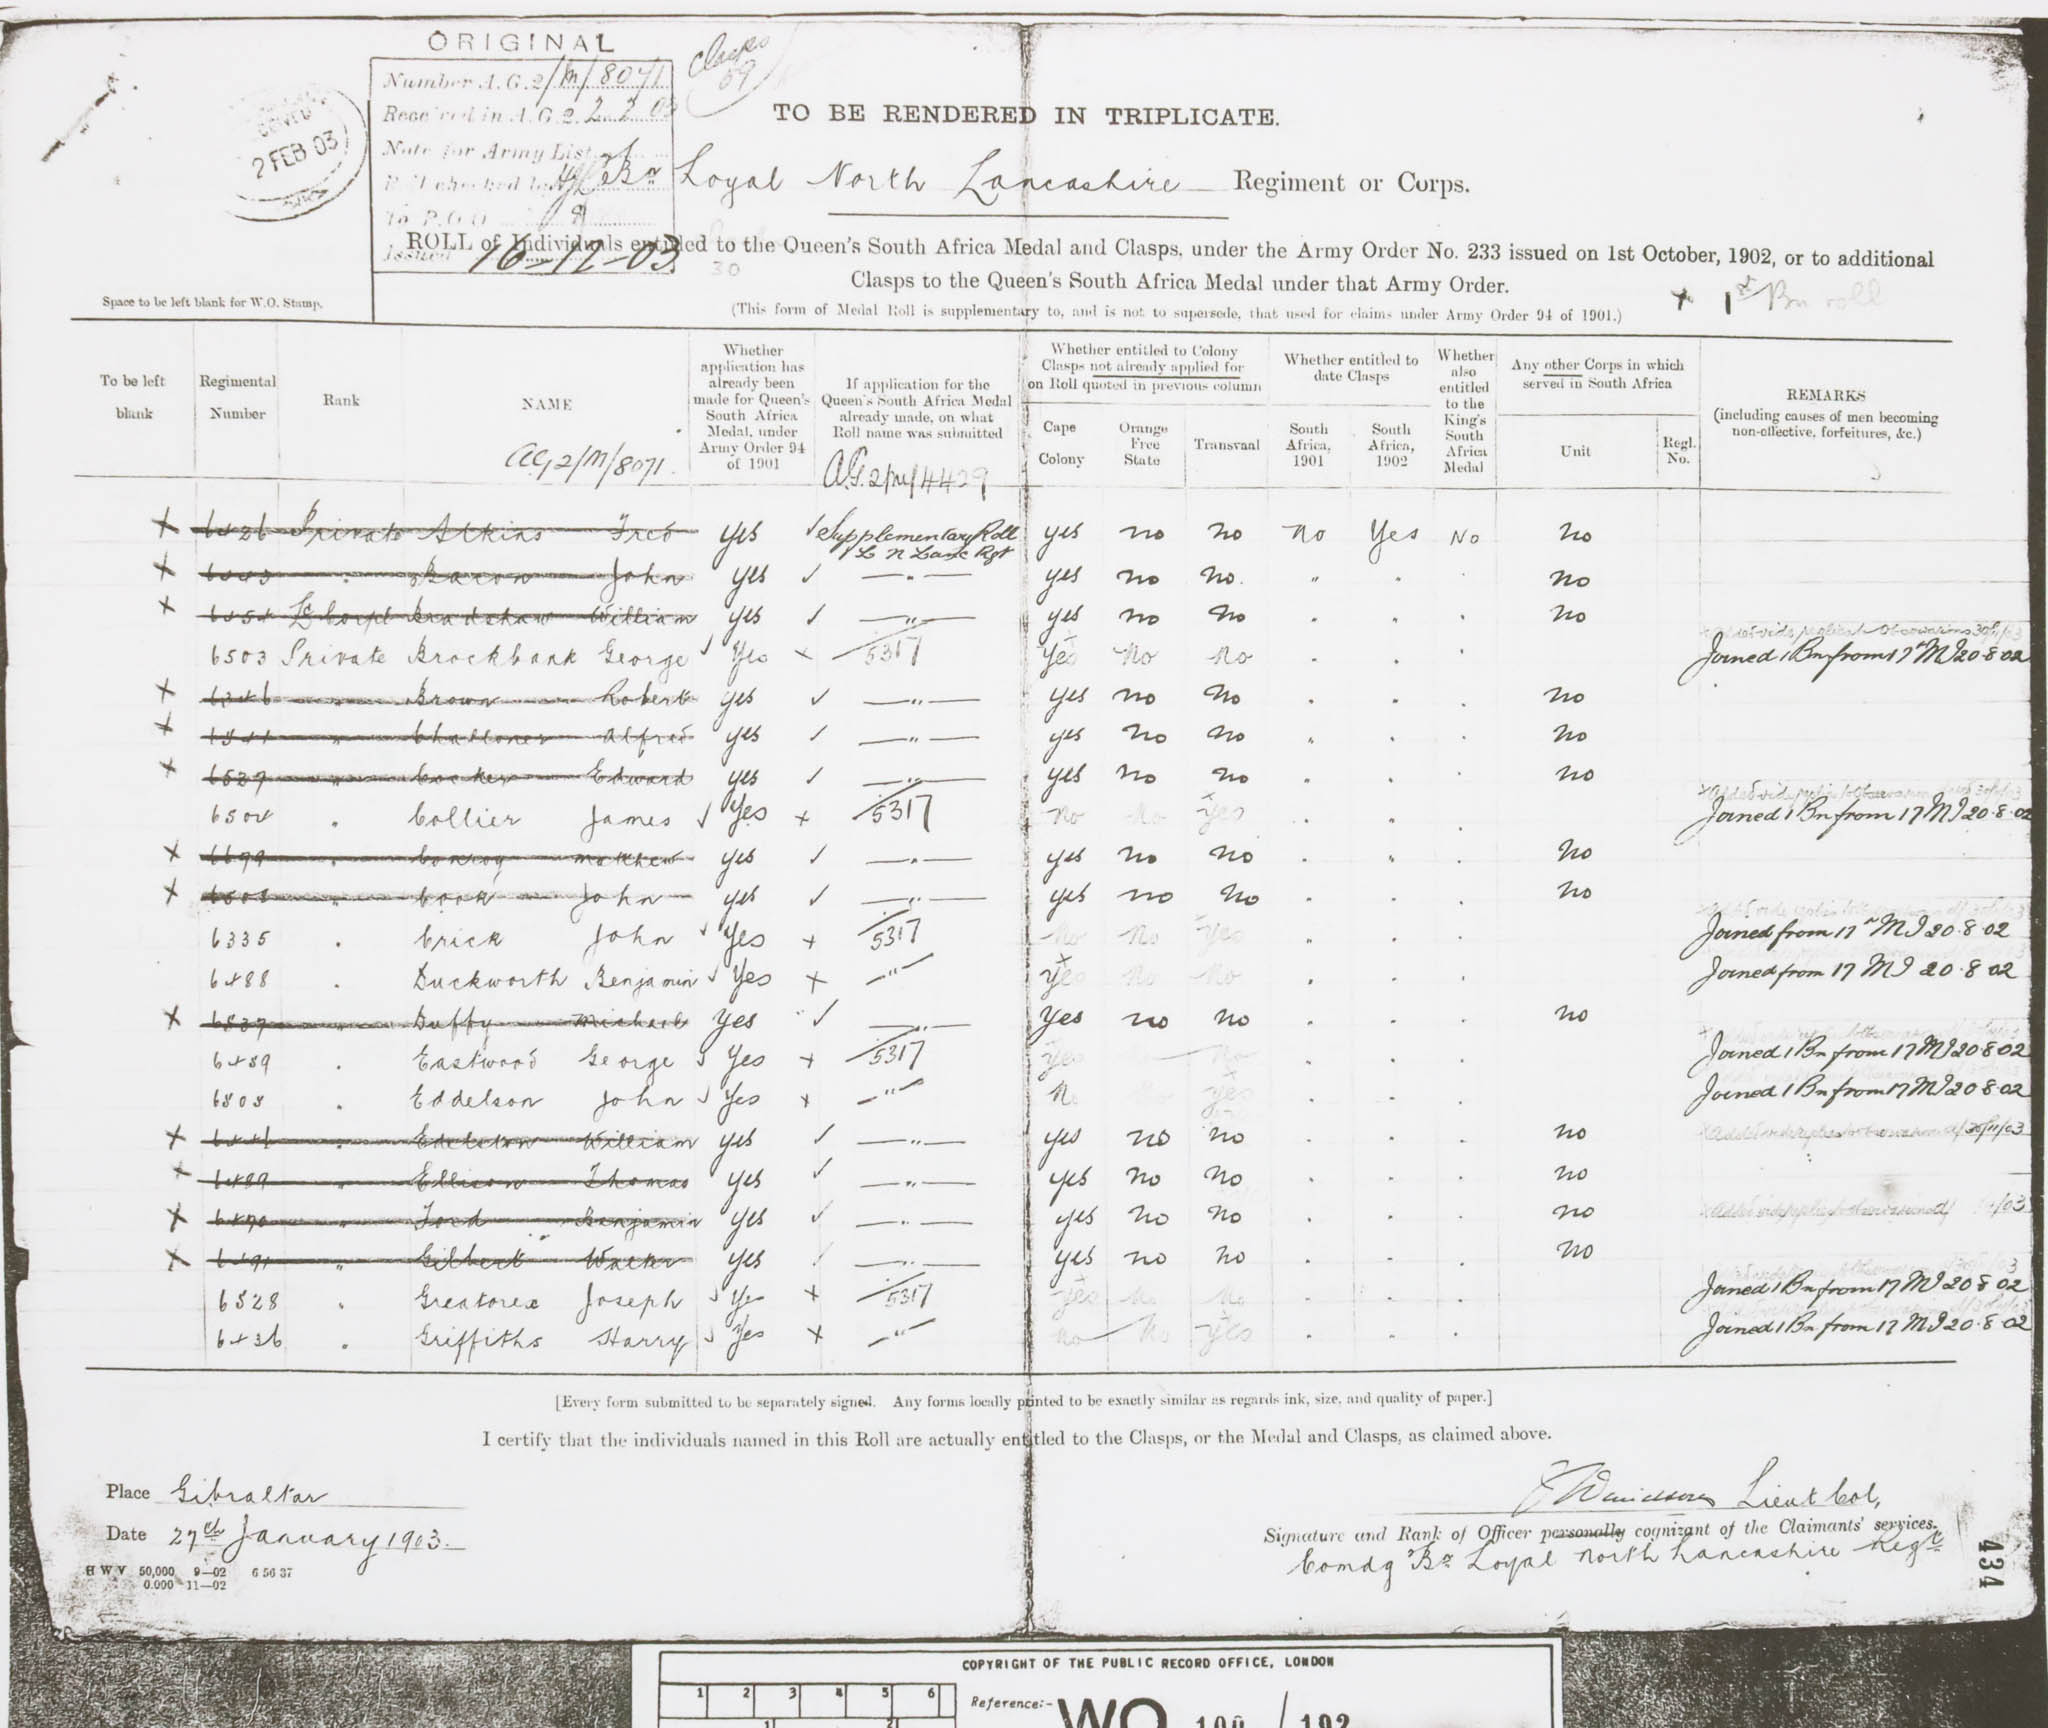 ORIGINAL
Number A.G.2/M/8071
Received in A.G.2. 2.2.03
Note for Army List
Roll checked by
To P.O.O
Issued 16-11-03
Clasps
59
2 FEB 03
TO BE RENDERED IN TRIPLICATE.
Bn Loyal North Lancashire Regiment or Corps.
ROLL of Individuals entitled to the Queen's South Africa Medal and Clasps, under the Army Order No. 233 issued on 1st October, 1902, or to additional
Clasps to the Queen's South Africa Medal under that Army Order.
30
Space to be left blank for W.O. Stamp.
(This form of Medal Roll is supplementary to, and is not to supersede, that used for claims under Army Order 94 of 1901.)
+ 1st Bn roll
To be left blank
Regimental Number
Rank
NAME
AG2/M/8071.
Whether application has already been made for Queen's South Africa Medal, under Army Order 94 of 1901
If application for the Queen's South Africa Medal already made, on what Roll name was submitted
A.G.2/M/4429
Whether entitled to Colony Clasps not already applied for on Roll quoted in previous column
Cape Colony
Orange Free State
Transvaal
Whether entitled to date Clasps
South Africa, 1901
South Africa, 1902
Whether also entitled to the King's South Africa Medal
Any other Corps in which served in South Africa
Unit
Regl. No.
REMARKS
(including causes of men becoming non-effective, forfeitures, &c.)
x 6426 Private Atkins Fred yes ✓ Supplementary Roll L N Lanc Rgt yes no no No Yes No no
x Baron John yes ✓ — " — yes no no. " " . no
x 6454 Lc Corpl Bradshaw William yes ✓ — " — yes no no " " . no
6503 Private Brockbank George ✓ Yes x 5317 Yes No No . . . Joined 1 Bn from 17th MI 20.8.02
x 6346 " Brown Robert yes ✓ — " — yes no no . . . no
x " Challoner Alfred yes ✓ — " — yes no no " . . no
x 6527 " Cocker Edward yes ✓ — " — yes no no " . . no
6504 " Collier James ✓ Yes x 5317 No No Yes . " . Joined 1 Bn from 17 MI 20.8.02
x 6679 " Conroy Matthew yes ✓ — " — yes no no . " . no
x " Cook John yes ✓ — " — yes no no . . . no
6335 " Crick John ✓ Yes x 5317 No No Yes " . . Joined from 17th MI 20.8.02
6488 " Duckworth Benjamin ✓ Yes x — " — Yes No No . . . Joined from 17 MI 20.8.02
x 6537 " Duffy Michael Yes ✓ — " — Yes no no . . . no
6489 " Eastwood George ✓ Yes x 5317 Yes No . . . Joined 1 Bn from 17 MI 20.8.02
6508 " Eddelson John ✓ Yes x — " — No Yes . . . Joined 1 Bn from 17 MI 20.8.02
x 6441 " Edelston William yes ✓ — " — yes no no . . . no
x 6489 " Ellison Thomas yes ✓ — " — yes no no . . . no
x 6470 " Ford Benjamin yes ✓ — " — yes no no . . . no
x 6491 " Gilbert Walter yes ✓ — " — yes no no . . . no
6528 " Greatorex Joseph ✓ Yes x 5317 Yes No No . . . Joined 1 Bn from 17 MI 20.8.02
6436 " Griffiths Harry ✓ Yes x — " — No No Yes . . . Joined 1 Bn from 17 MI 20.8.02
[Every form submitted to be separately signed. Any forms locally printed to be exactly similar as regards ink, size, and quality of paper.]
I certify that the individuals named in this Roll are actually entitled to the Clasps, or the Medal and Clasps, as claimed above.
Place Gibraltar
Date 27th January 1903.
Davidson Lieut Col,
Signature and Rank of Officer personally cognizant of the Claimants' services.
Comdg Bn Loyal North Lancashire Regt
H W V 50,000 9—02 6 56 37
0.000 11—02
434
COPYRIGHT OF THE PUBLIC RECORD OFFICE, LONDON
1 2 3 4 5 6
Reference:- WO 100 / 192
1 2